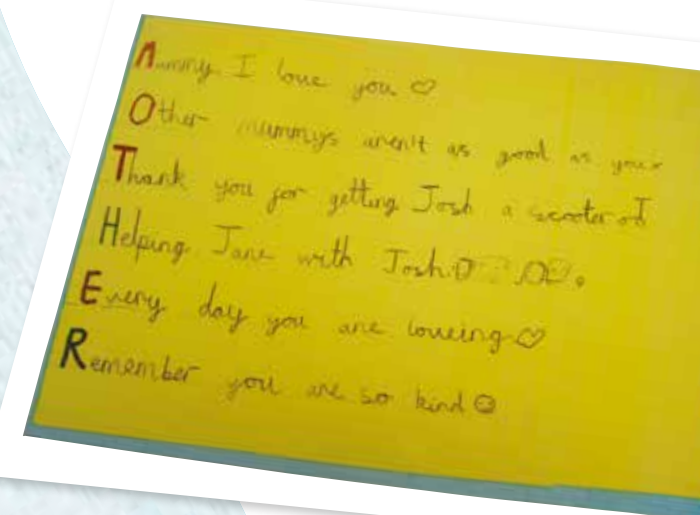 Mummy I love you ♡
Other mummys aren't as good as your
Thank you for getting Josh a scooter
Helping Jane with Josh
Every day you are loveing ♡
Remember you are so kind ☺